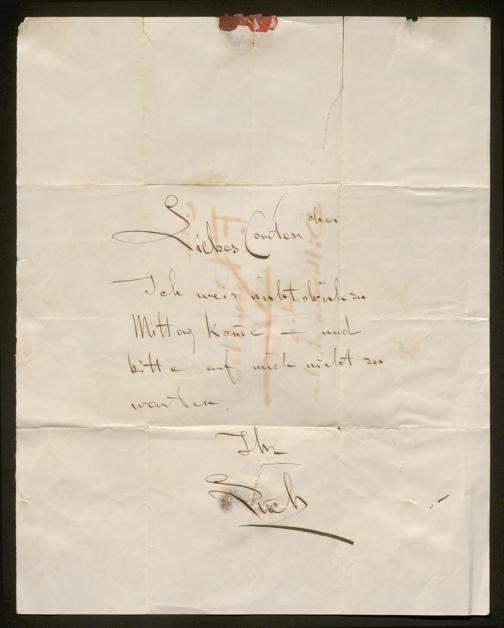 Liebes Comtesschen
Ich weis nicht ob ich zu
Mittag kome – und
bitte auf mich nicht zu
warten.
Ihr